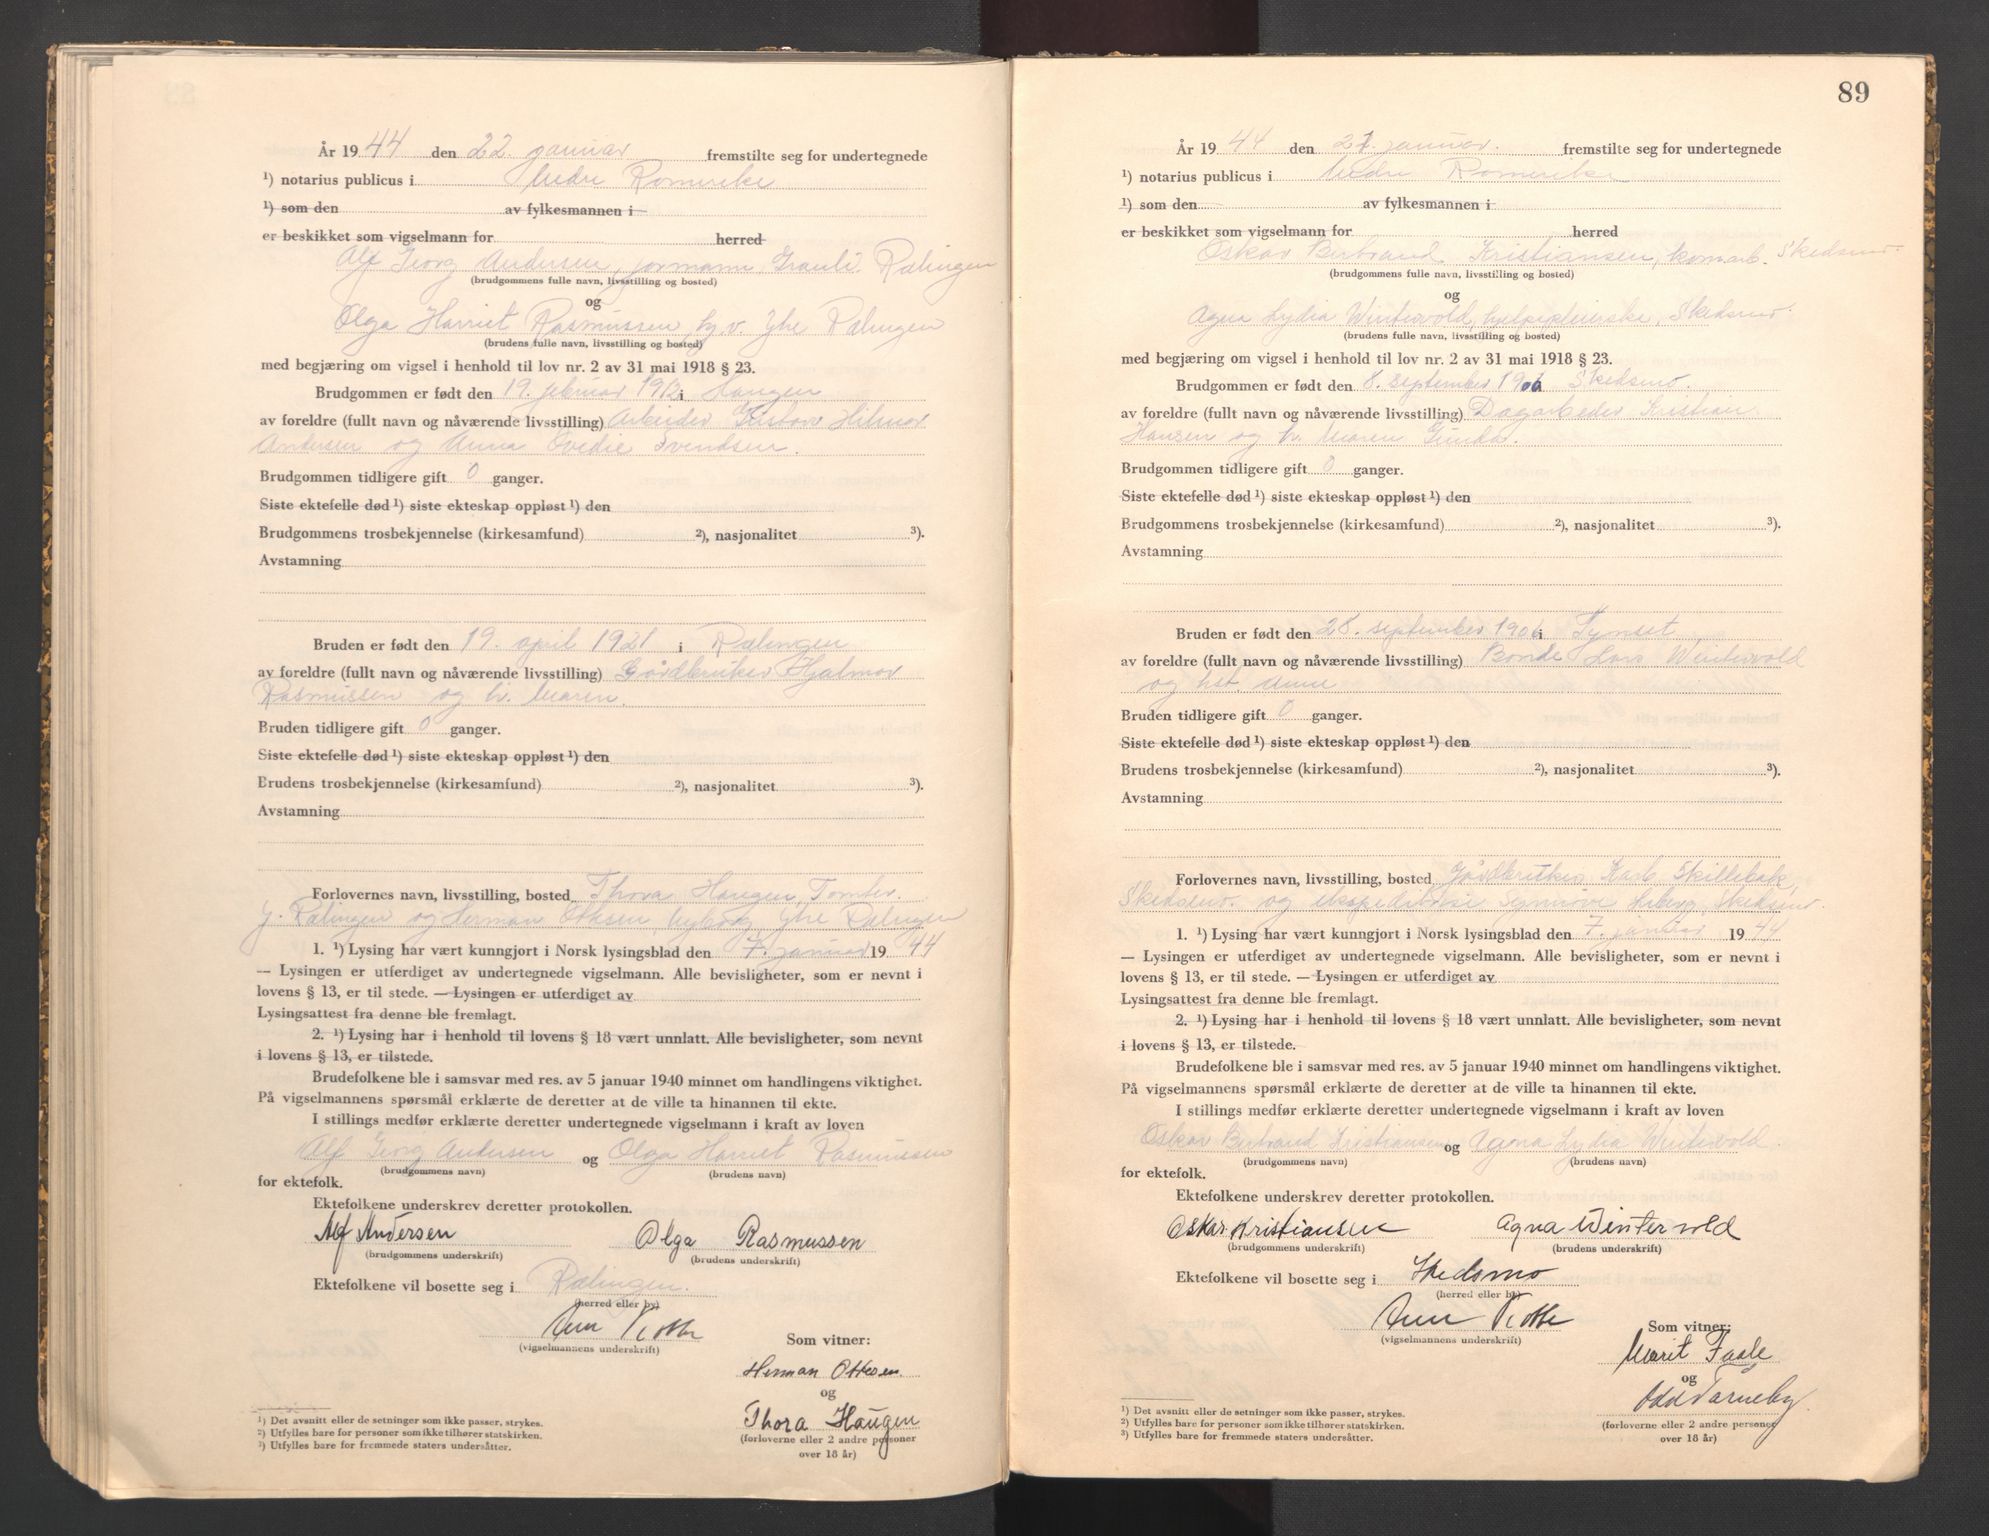 År 1944 den 22. januar fremstilte seg for undertegnede
¹) notarius publicus i Nedre Romerike
¹) som den av fylkesmannen i
er beskikket som vigselmann for herred
Alf Georg Andersen, formann, Grauli. Rælingen
(brudgommens fulle navn, livsstilling og bosted)
og
Olga Harriet Rasmussen, hj.v. Yhe Rælingen
(brudens fulle navn, livsstilling og bosted)
med begjæring om vigsel i henhold til lov nr. 2 av 31 mai 1918 § 23.
Brudgommen er født den 19. februar 1912 i Haugen
av foreldre (fullt navn og nåværende livsstilling) Arbeider Gustav Hilmar
Andersen og Anna Ovedie Svendsen.
Brudgommen tidligere gift 0 ganger.
Siste ektefelle død ¹) siste ekteskap oppløst ¹) den
Brudgommens trosbekjennelse (kirkesamfund) ²), nasjonalitet ³).
Avstamning
Bruden er født den 19. april 1921 i Rælingen
av foreldre (fullt navn og nåværende livsstilling) Gårdbruker Hjalmar
Rasmussen og h. Maren.
Bruden tidligere gift 0 ganger.
Siste ektefelle død ¹) siste ekteskap oppløst ¹) den
Brudens trosbekjennelse (kirkesamfund) ²), nasjonalitet ³).
Avstamning
Forlovernes navn, livsstilling, bosted Thora Haugen, Tomter
g. Rælingen og Herman Ottesen, Yhe Rælingen
1. ¹) Lysing har vært kunngjort i Norsk lysingsblad den 7. januar 1944
— Lysingen er utferdiget av undertegnede vigselmann. Alle bevisligheter, som er nevnt i
lovens § 13, er til stede. — Lysingen er utferdiget av
Lysingsattest fra denne ble fremlagt.
2. ¹) Lysing har i henhold til lovens § 18 vært unnlatt. Alle bevisligheter, som nevnt
i lovens § 13, er tilstede.
Brudefolkene ble i samsvar med res. av 5 januar 1940 minnet om handlingens viktighet.
På vigselmannens spørsmål erklærte de deretter at de ville ta hinannen til ekte.
I stillings medfør erklærte deretter undertegnede vigselmann i kraft av loven
Alf Georg Andersen og Olga Harriet Rasmussen
(brudgommens navn) (brudens navn)
for ektefolk.
Ektefolkene underskrev deretter protokollen.
Alf Andersen Olga Rasmussen
(brudgommens underskrift) (brudens underskrift)
Ektefolkene vil bosette seg i Rælingen.
(herred eller by)
(vigselmannens underskrift)
Som vitner:
Herman Ottesen
og
Thora Haugen
(forloverne eller 2 andre personer
over 18 år)
¹) Det avsnitt eller de setninger som ikke passer, strykes.
²) Utfylles bare for personer som ikke tilhører statskirken.
³) Utfylles bare for fremmede staters undersåtter.
89
År 1944 den 21. januar. fremstilte seg for undertegnede
¹) notarius publicus i Nedre Romerike
¹) som den av fylkesmannen i
er beskikket som vigselmann for herred
Oskar Bertrand Kristiansen, kom.arb. Skedsmo.
(brudgommens fulle navn, livsstilling og bosted)
og
Agna Lydia Wintervold, hjelpepleierske, Skedsmo.
(brudens fulle navn, livsstilling og bosted)
med begjæring om vigsel i henhold til lov nr. 2 av 31 mai 1918 § 23.
Brudgommen er født den 8. september 1906 Skedsmo.
av foreldre (fullt navn og nåværende livsstilling) Dagarbeder Kristian
Hansen og h. Maren Gunda.
Brudgommen tidligere gift 0 ganger.
Siste ektefelle død ¹) siste ekteskap oppløst ¹) den
Brudgommens trosbekjennelse (kirkesamfund) ²), nasjonalitet ³).
Avstamning
Bruden er født den 28. september 1906 i Tynset
av foreldre (fullt navn og nåværende livsstilling) Bonde Lars Wintervold
og hst. Anne
Bruden tidligere gift 0 ganger.
Siste ektefelle død ¹) siste ekteskap oppløst ¹) den
Brudens trosbekjennelse (kirkesamfund) ²), nasjonalitet ³).
Avstamning
Forlovernes navn, livsstilling, bosted Gårdbruker Karl Skillebæk,
Skedsmo. og ekspeditrise Synnøve Arberg, Skedsmo.
1. ¹) Lysing har vært kunngjort i Norsk lysingsblad den 7. januar 1944
— Lysingen er utferdiget av undertegnede vigselmann. Alle bevisligheter, som er nevnt i
lovens § 13, er til stede. — Lysingen er utferdiget av
Lysingsattest fra denne ble fremlagt.
2. ¹) Lysing har i henhold til lovens § 18 vært unnlatt. Alle bevisligheter, som nevnt
i lovens § 13, er tilstede.
Brudefolkene ble i samsvar med res. av 5 januar 1940 minnet om handlingens viktighet.
På vigselmannens spørsmål erklærte de deretter at de ville ta hinannen til ekte.
I stillings medfør erklærte deretter undertegnede vigselmann i kraft av loven
Oskar Bertrand Kristiansen og Agna Lydia Wintervold.
(brudgommens navn) (brudens navn)
for ektefolk.
Ektefolkene underskrev deretter protokollen.
Oskar Kristiansen Agna Wintervold
(brudgommens underskrift) (brudens underskrift)
Ektefolkene vil bosette seg i Skedsmo
(herred eller by)
(vigselmannens underskrift)
Som vitner:
Marit Faale
og
Odd Tarneby.
(forloverne eller 2 andre personer
over 18 år)
¹) Det avsnitt eller de setninger som ikke passer, strykes.
²) Utfylles bare for personer som ikke tilhører statskirken.
³) Utfylles bare for fremmede staters undersåtter.